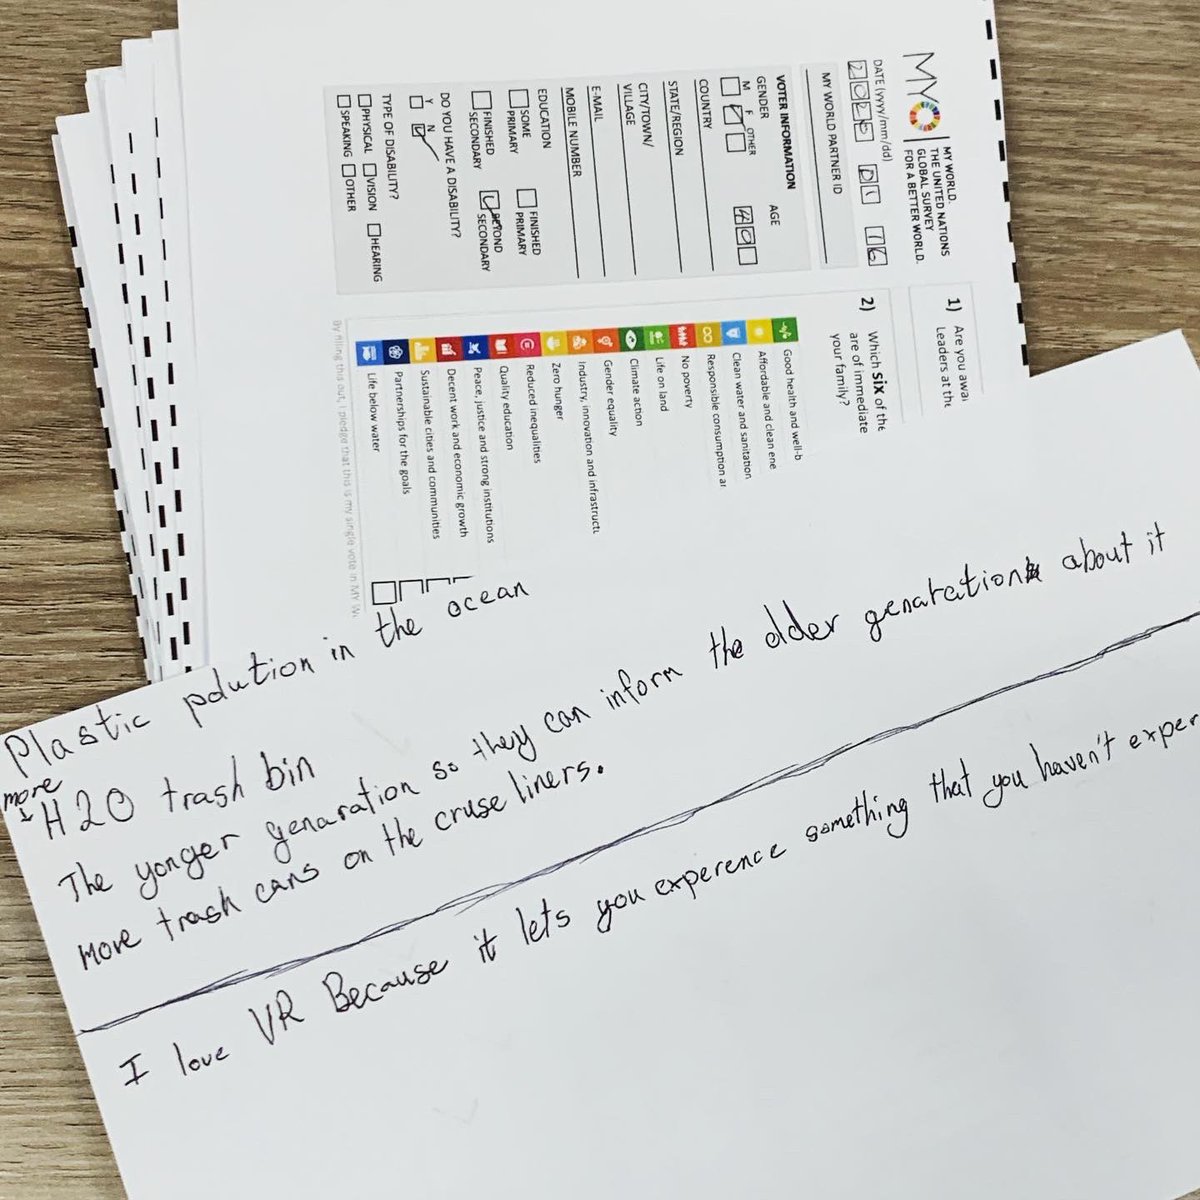 MY
MY WORLD.
THE UNITED NATIONS
GLOBAL SURVEY
FOR A BETTER WORLD.
DATE (yyyy/mm/dd)
01 16
MY WORLD PARTNER ID
VOTER INFORMATION
GENDER
AGE
M F OTHER
40
COUNTRY
STATE/REGION
CITY/TOWN/
VILLAGE
E-MAIL
MOBILE NUMBER
EDUCATION
SOME
PRIMARY
FINISHED
PRIMARY
FINISHED
SECONDARY
BEYOND
SECONDARY
DO YOU HAVE A DISABILITY?
Y N
TYPE OF DISABILITY?
PHYSICAL VISION HEARING
SPEAKING OTHER
1) Are you awa
Leaders at the
2) Which six of the
are of immediate
your family?
Good health and well-b
Affordable and clean ene
Clean water and sanitation
Responsible consumption ar
No poverty
Life on land
Climate action
Gender equality
Industry, innovation and infrastructu
Zero hunger
Reduced inequalities
Quality education
Peace, justice and strong institutions
Decent work and economic growth
Sustainable cities and communities
Partnerships for the goals
Life below water
By filling this out, I pledge that this is my single vote in MY W
Plastic polution in the ocean
more
H2O trash bin
The yonger genaration so they can inform the older genaration about it
more trash cans on the cruse liners.
I love VR Because it lets you experence something that you haven't exper